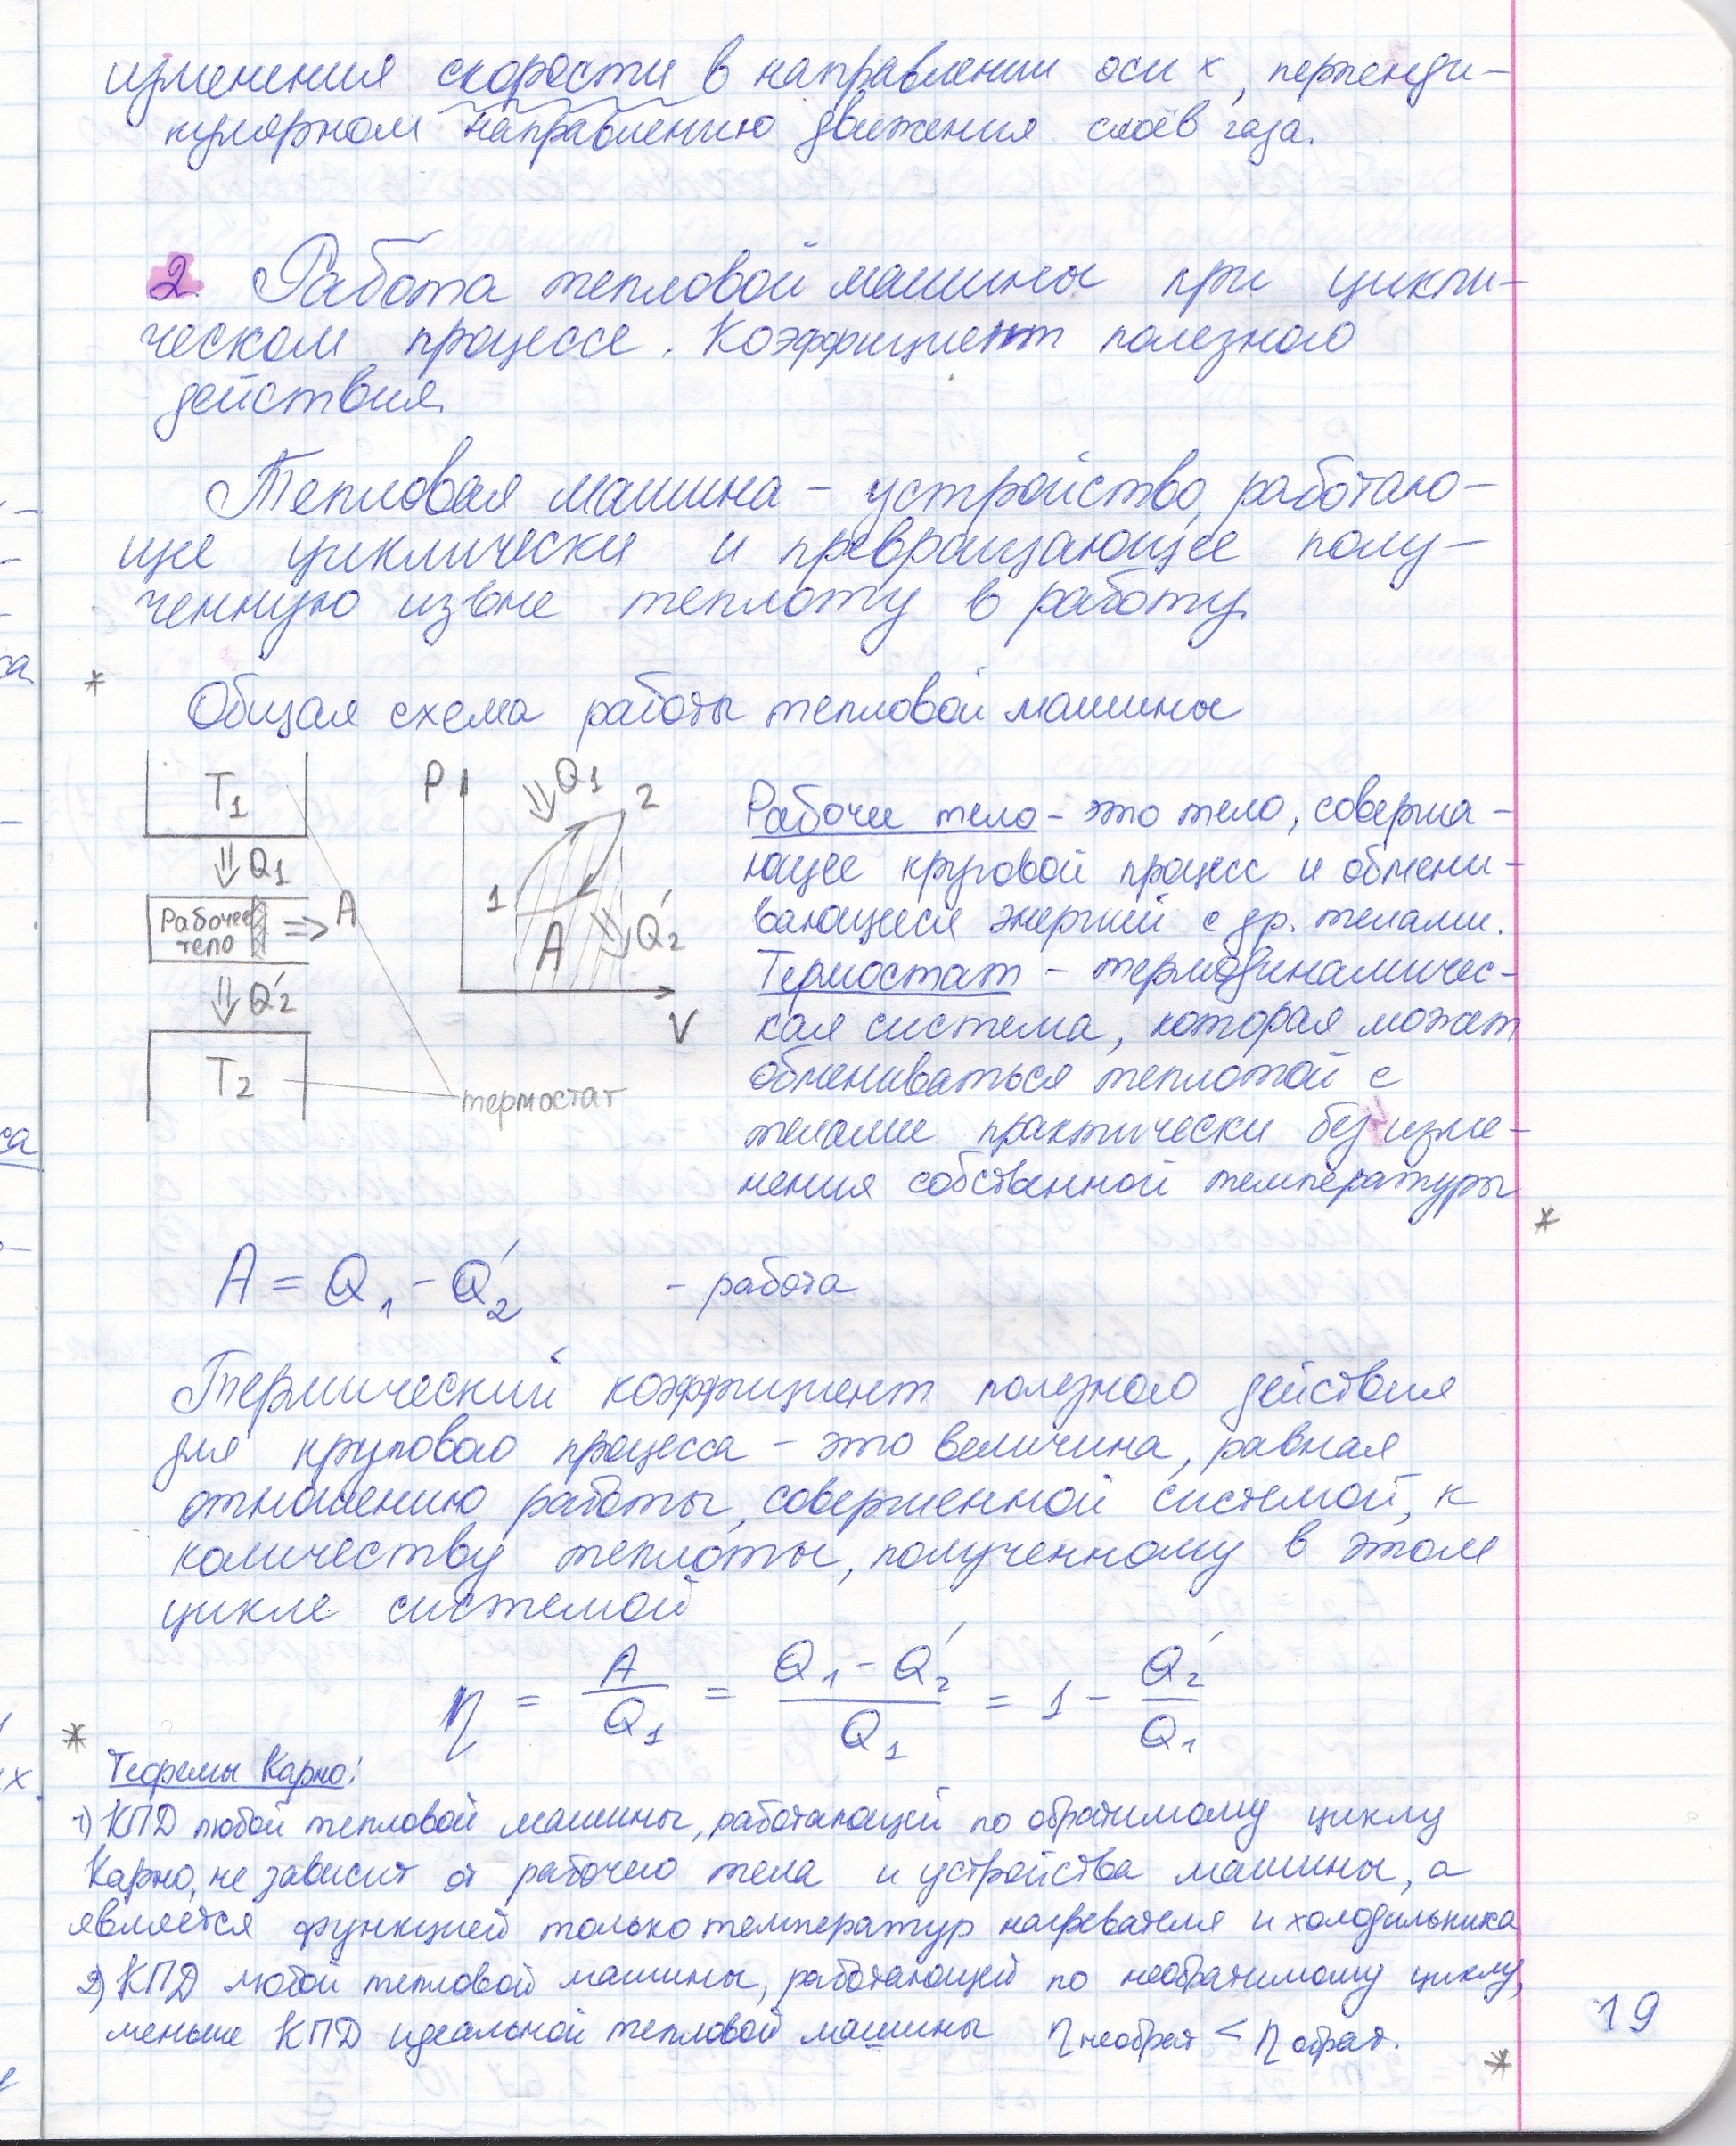 изменения скорости в направлении оси x, перпенди-
кулярном направлению движения слоёв газа.
2. Работа тепловой машины при цикли-
ческом процессе. Коэффициент полезного
действия.
Тепловая машина - устройство, работаю-
щее циклически и превращающее полу-
ченную извне теплоту в работу.
*
Общая схема работы тепловой машины
T1
Q1
Рабочее
тело
=> A
Q'2
T2
термостат
P
Q1
2
1
A
Q'2
V
Рабочее тело - это тело, соверша-
ющее круговой процесс и обмени-
вающееся энергией с др. телами.
Термостат - термодинамичес-
кая система, которая может
обмениваться теплотой с
телами практически без изме-
нения собственной температуры
*
A = Q1 - Q'2 - работа
Термический коэффициент полезного действия
для кругового процесса - это величина, равная
отношению работы, совершенной системой, к
количеству теплоты, полученному в этом
цикле системой
η = A/Q1 = (Q1 - Q'2)/Q1 = 1 - Q'2/Q1
*
Теоремы Карно:
1) КПД любой тепловой машины, работающей по обратимому циклу
Карно, не зависит от рабочего тела и устройства машины, а
является функцией только температур нагревателя и холодильника
2) КПД любой тепловой машины, работающей по необратимому циклу,
меньше КПД идеальной тепловой машины η необрат < η обрат.
*
19